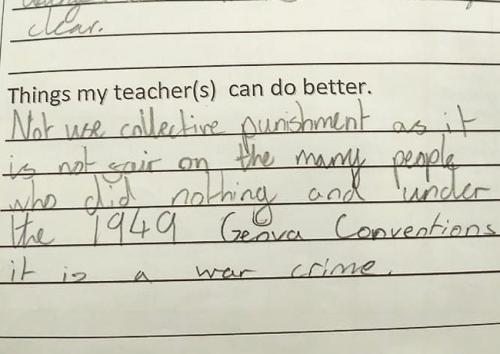 clear.
Things my teacher(s) can do better.
Not use collective punishment as it
is not fair on the many people
who did nothing and under
the 1949 Genva Conventions
it is a war crime.